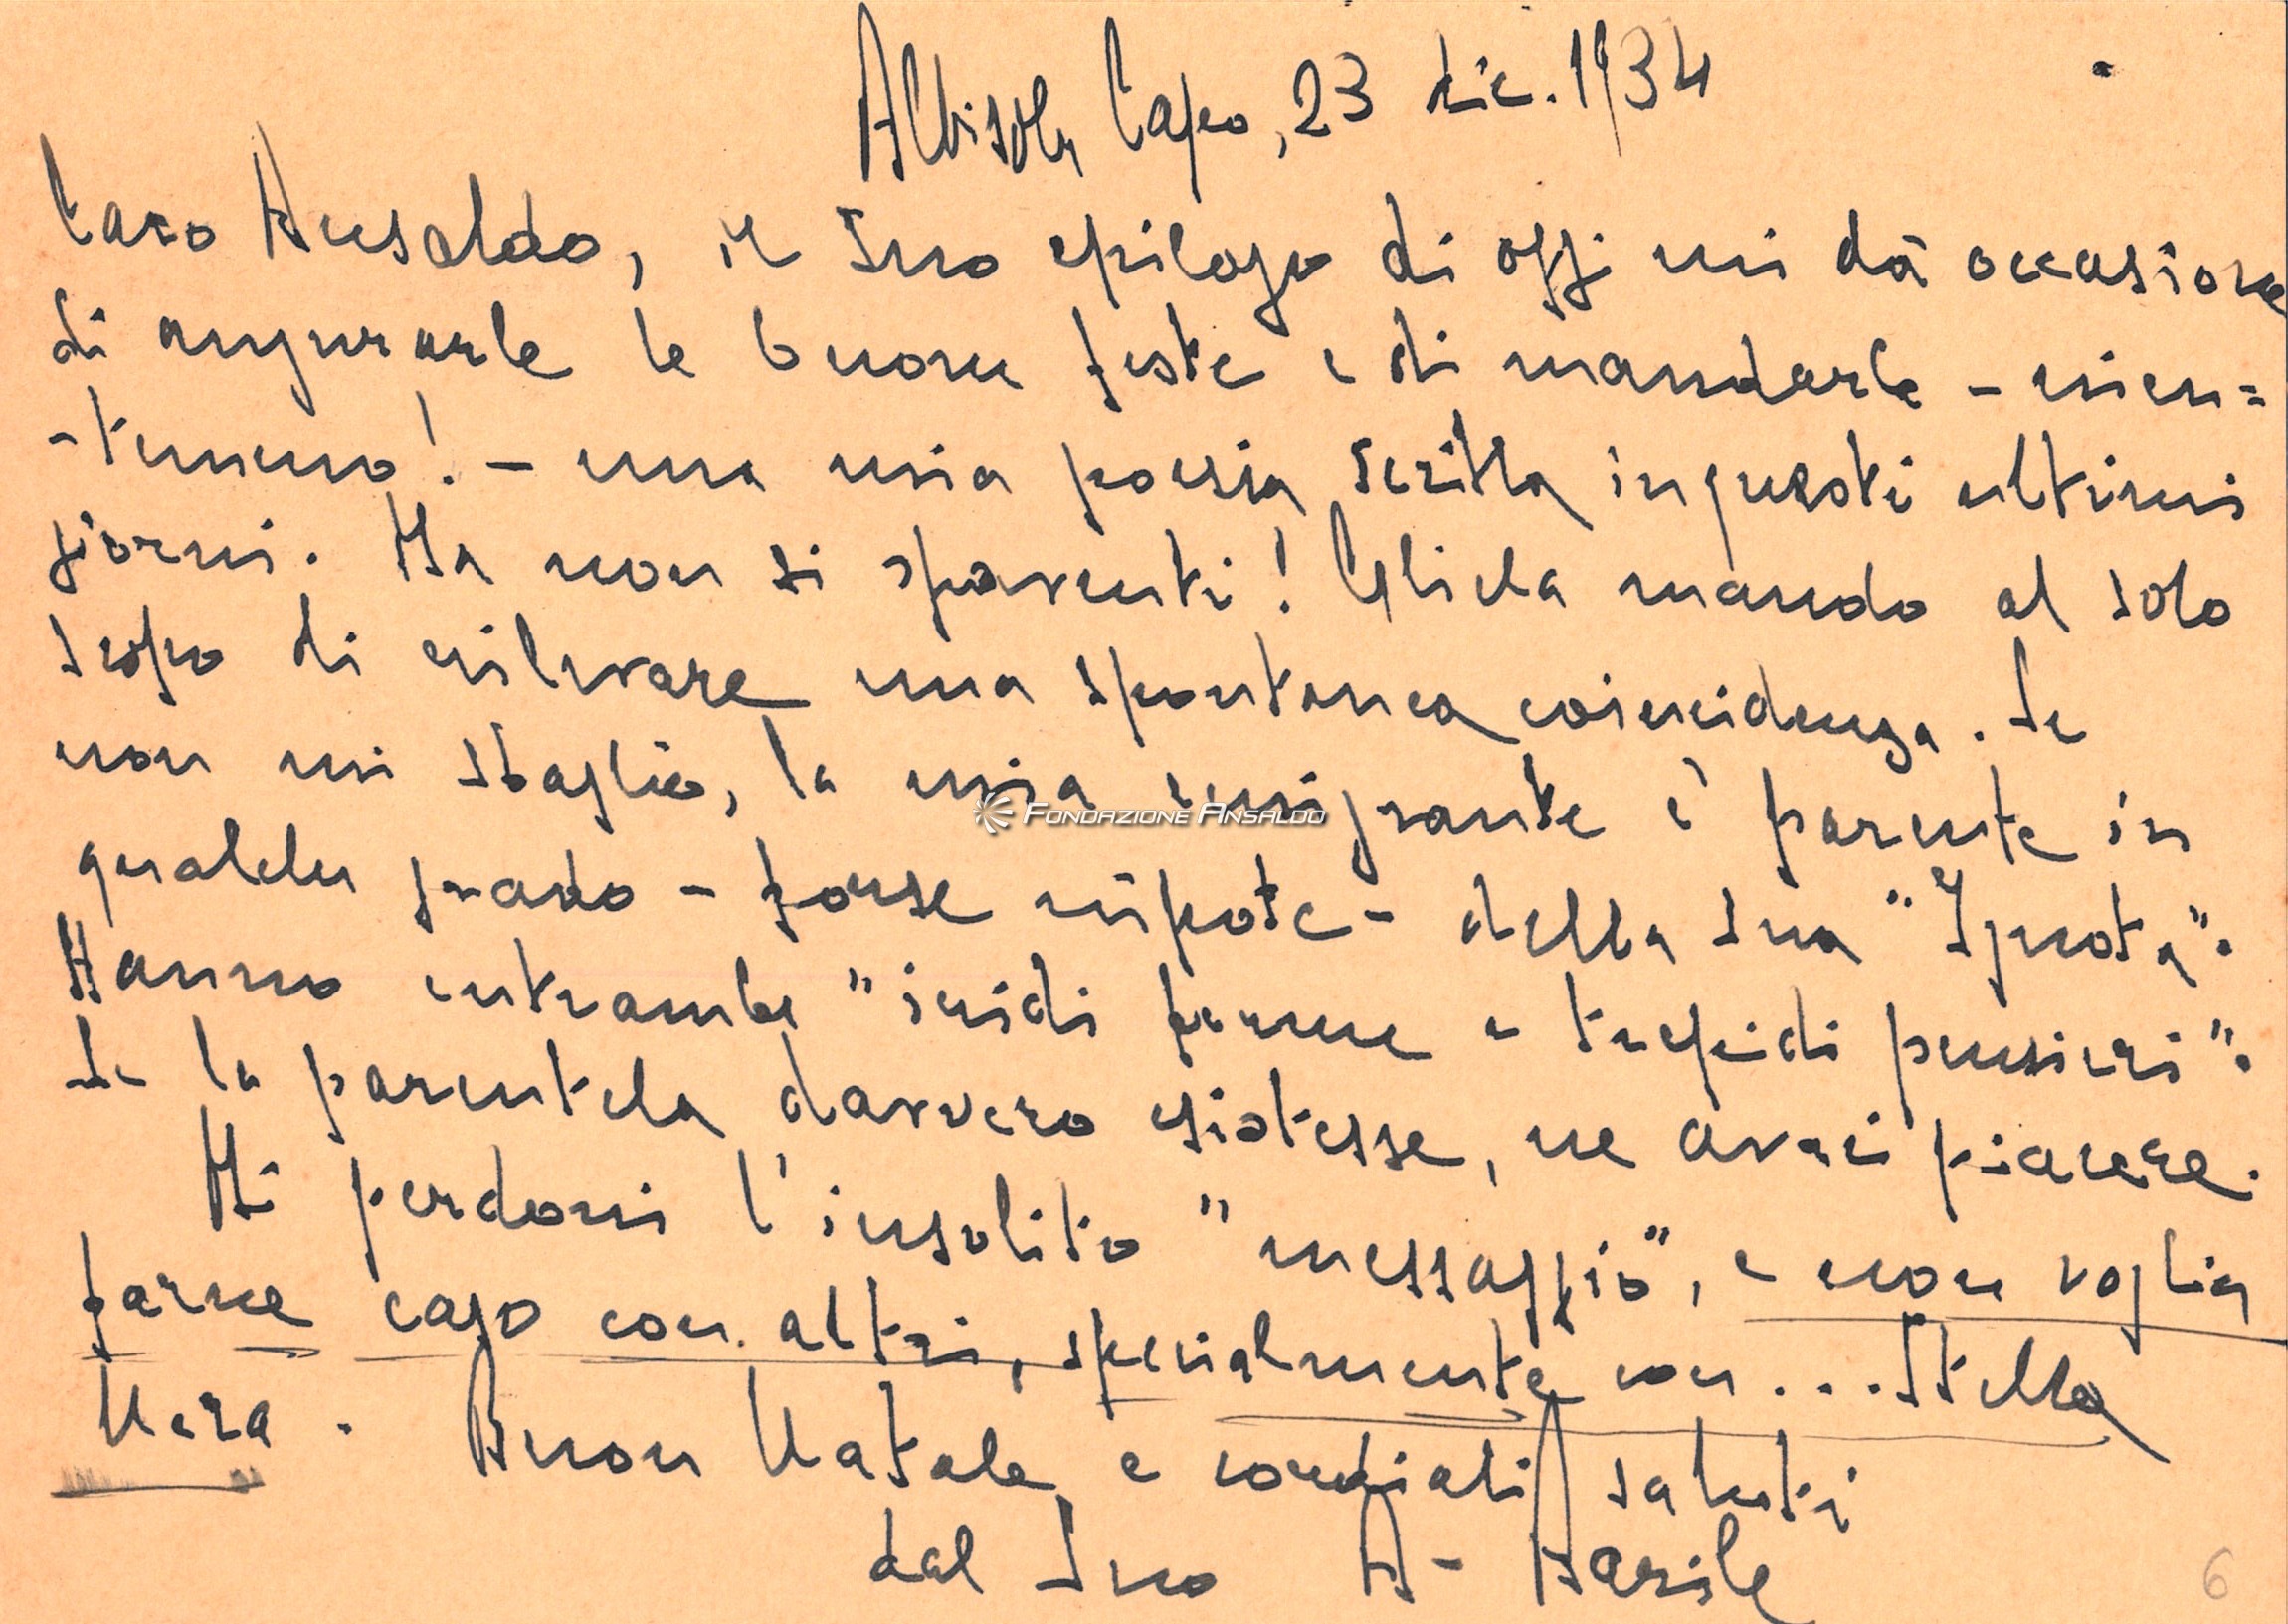 Albisola Capo, 23 dic. 1934
Caro Ansaldo, il Suo epilogo di oggi mi dà occasione
di augurarle le buone feste e di mandarle - nien=
-temeno! - una mia poesia scritta in questi ultimi
giorni. Ma non si spaventi! Gliela mando al solo
scopo di rilevare una spontanea coincidenza. Se
non mi sbaglio, la mia emigrante è parente in
qualche grado - forse nipote - della Sua "Ignota".
Hanno entrambe "iridi ferme e trepidi pensieri".
Se la parentela davvero esistesse, ne avrei piacere.
Mi perdoni l'insolito "messaggio", e non voglia
farne caso con altri, specialmente con... Stella
Nera. Buon Natale e cordiali saluti
dal Suo A. Barile
FONDAZIONE ANSALDO
6